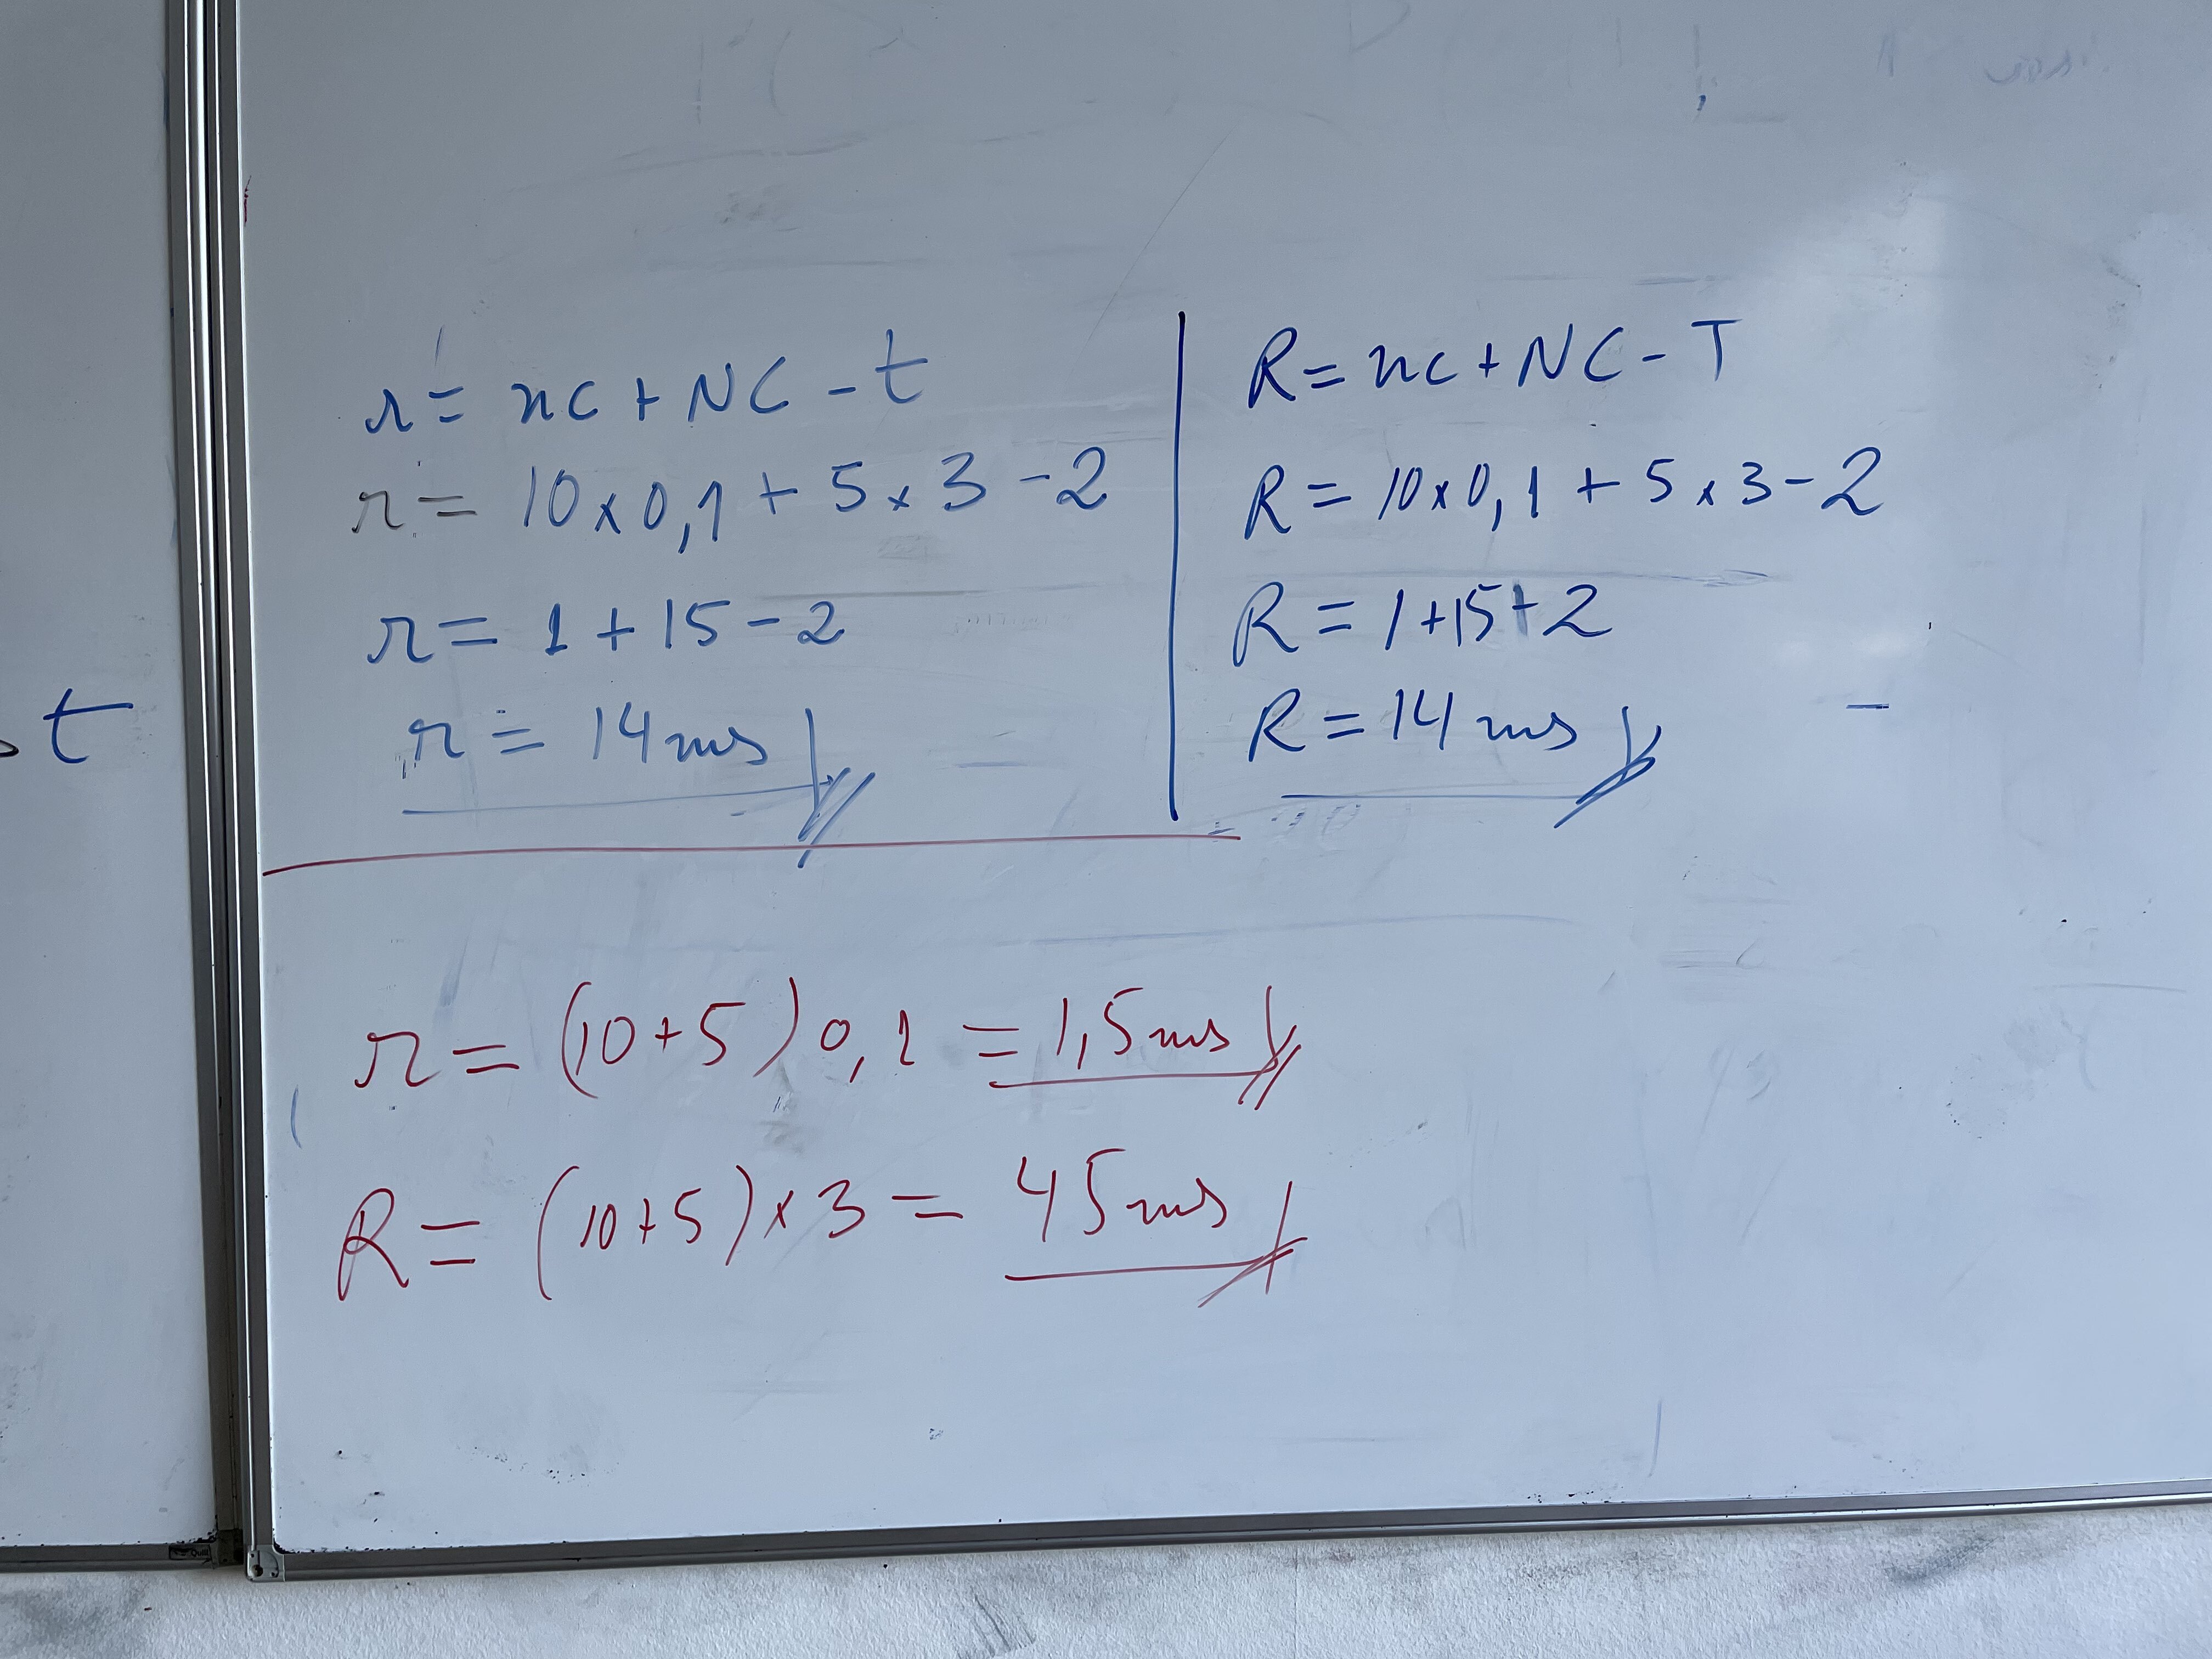 r = nc + NC - t
r = 10 x 0,1 + 5 x 3 - 2
r = 1 + 15 - 2
r = 14 ms
R = nc + NC - T
R = 10 x 0,1 + 5 x 3 - 2
R = 1 + 15 + 2
R = 14 ms
t
r = (10 + 5) 0,1 = 1,5 ms
R = (10 + 5) x 3 = 45 ms